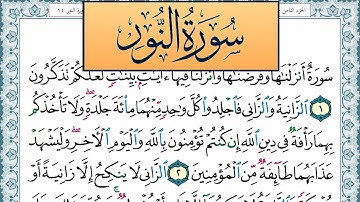 الجزء الثامن
سورة النور ٢٤
سُورَةُ النُّورِ
سُورَةٌ أَنزَلْنَٰهَا وَفَرَضْنَٰهَا وَأَنزَلْنَا فِيهَآ ءَايَٰتٍۭ بَيِّنَٰتٍ لَّعَلَّكُمْ تَذَكَّرُونَ
١ ٱلزَّانِيَةُ وَٱلزَّانِى فَٱجْلِدُوا۟ كُلَّ وَٰحِدٍ مِّنْهُمَا مِا۟ئَةَ جَلْدَةٍ وَلَا تَأْخُذْكُم
بِهِمَا رَأْفَةٌ فِى دِينِ ٱللَّهِ إِن كُنتُمْ تُؤْمِنُونَ بِٱللَّهِ وَٱلْيَوْمِ ٱلْءَاخِرِ وَلْيَشْهَدْ
عَذَابَهُمَا طَآئِفَةٌ مِّنَ ٱلْمُؤْمِنِينَ ٢ ٱلزَّانِى لَا يَنكِحُ إِلَّا زَانِيَةً أَوْ